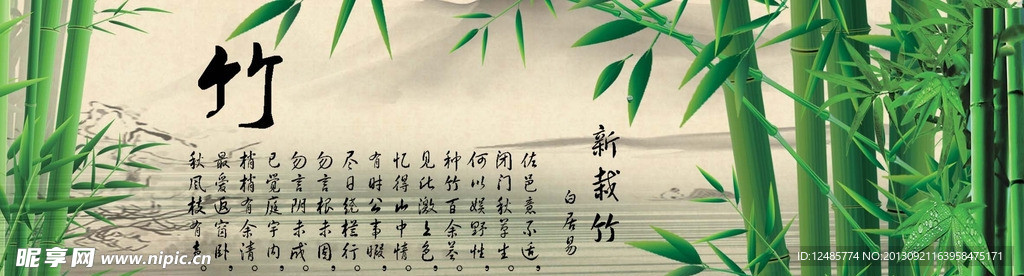 竹
新栽竹
白居易
佐邑意不适,
闭门秋草生。
何以娱野性,
种竹百余茎。
见此激上色,
忆得山中情。
有时公事暇,
尽日绕栏行。
勿言根未固,
勿言阴未成。
已觉庭宇内,
梢梢有余清。
最爱返窗卧,
秋风枝有声。
昵享网 www.nipic.cn
www.nipic.com
ID:12485774 NO:20130921163958475171